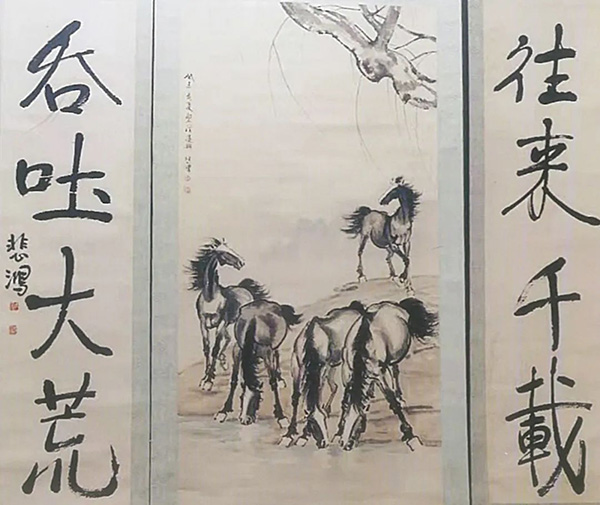 往来千載
吞吐大荒
悲鴻